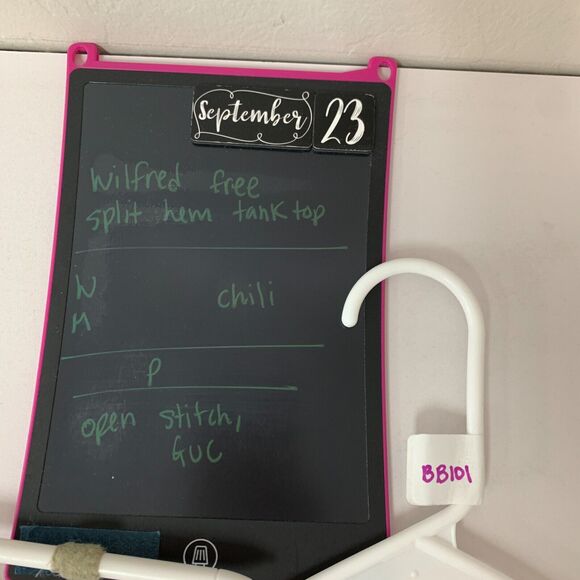 September 23
Wilfred free
split hem tank top
N chili
M
P
open stitch,
GUC
BB101